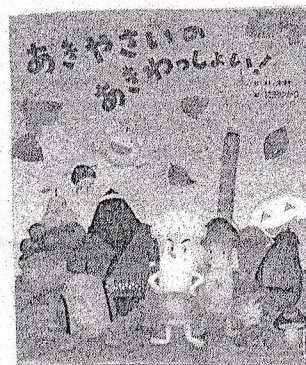 あきやさいの
あきわっしょい！